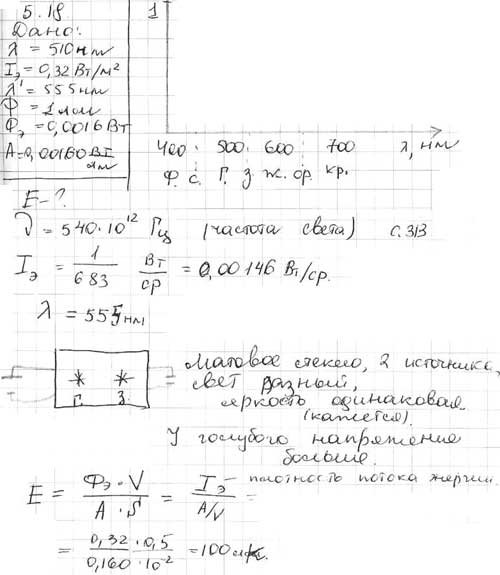 5.18
Дано:
λ = 510 нм
Iэ = 0,32 Вт/м²
λ' = 555 нм
Ф = 1 лм
Фэ = 0,0016 Вт
A = 0,00160 Вт/лм
E - ?
1
400 500 600 700 λ, нм
Ф. с. Г. З ж. ор. кр.
ν = 540·10¹² Гц (частота света) с. 313
Iэ = 1/683 Вт/ср = 0,00146 Вт/ср.
λ = 555 нм
Матовое стекло, 2 источника,
свет разный,
яркость одинаковая
(кажется).
Г. З.
У голубого напряжение
больше.
E = Фэ·V/A·S = Iэ/A/V = – плотность потока энергии.
= 0,32·0,5/0,160·10⁻² = 100 лк.